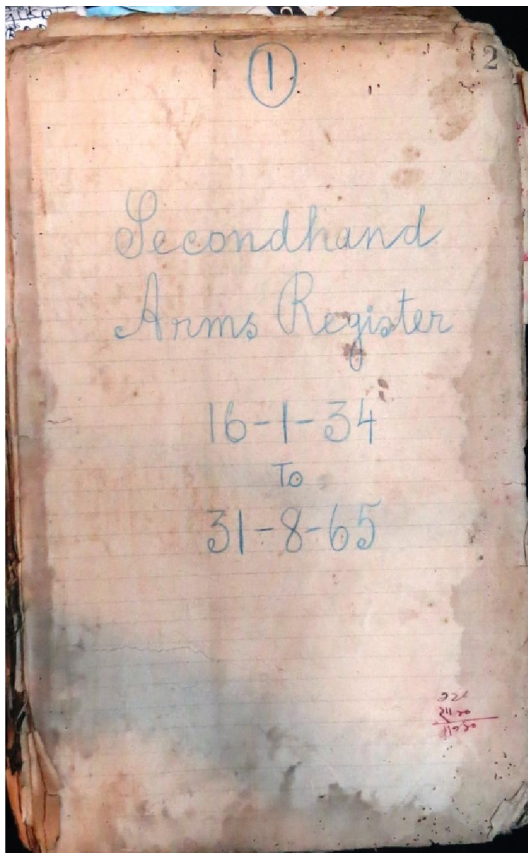 ①
2
Secondhand
Arms Register
16-1-34
To
31-8-65